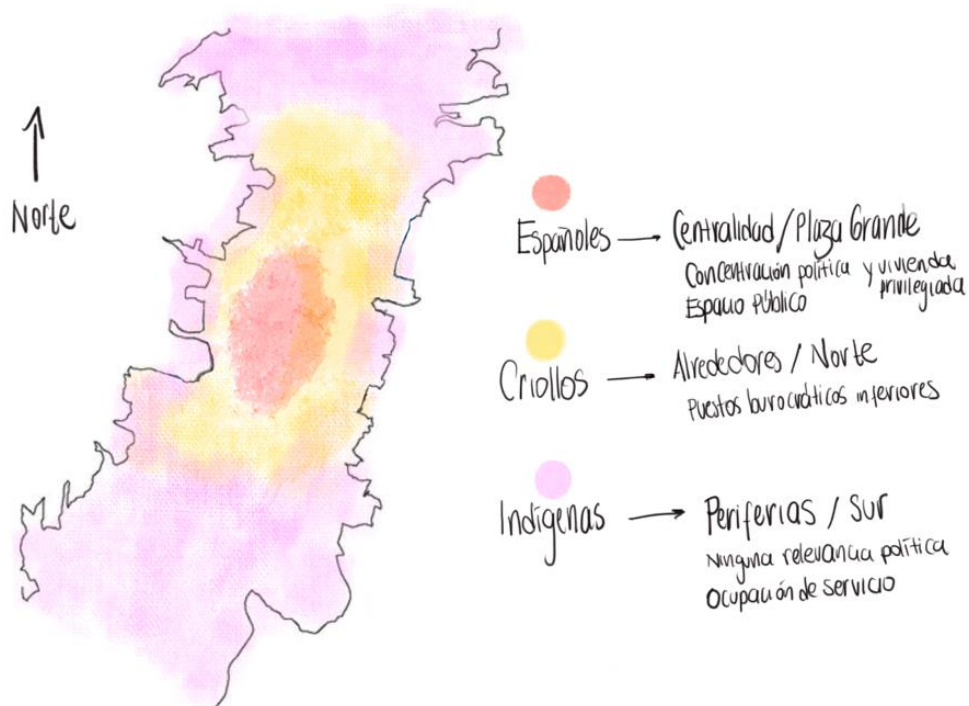 Norte
Españoles → Centralidad / Plaza Grande
Concentración política y vivienda privilegiada
Espacio Público
Criollos → Alrededores / Norte
Puestos burocráticos inferiores
Indígenas → Periferias / Sur
Ninguna relevancia política
Ocupación de servicio